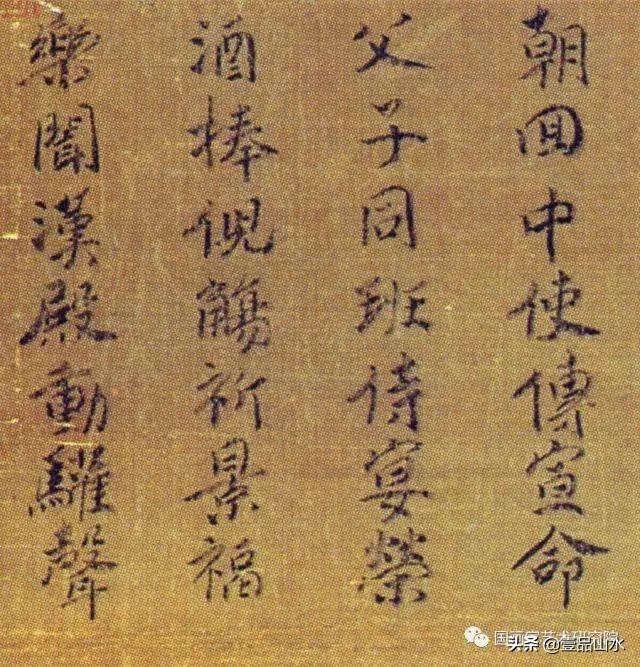 朝回中使傳宣命
父子同班侍宴榮
酒捧倪觴祈景福
樂聞漢殿動驩聲
艺术研究院
头条 @壹品山水